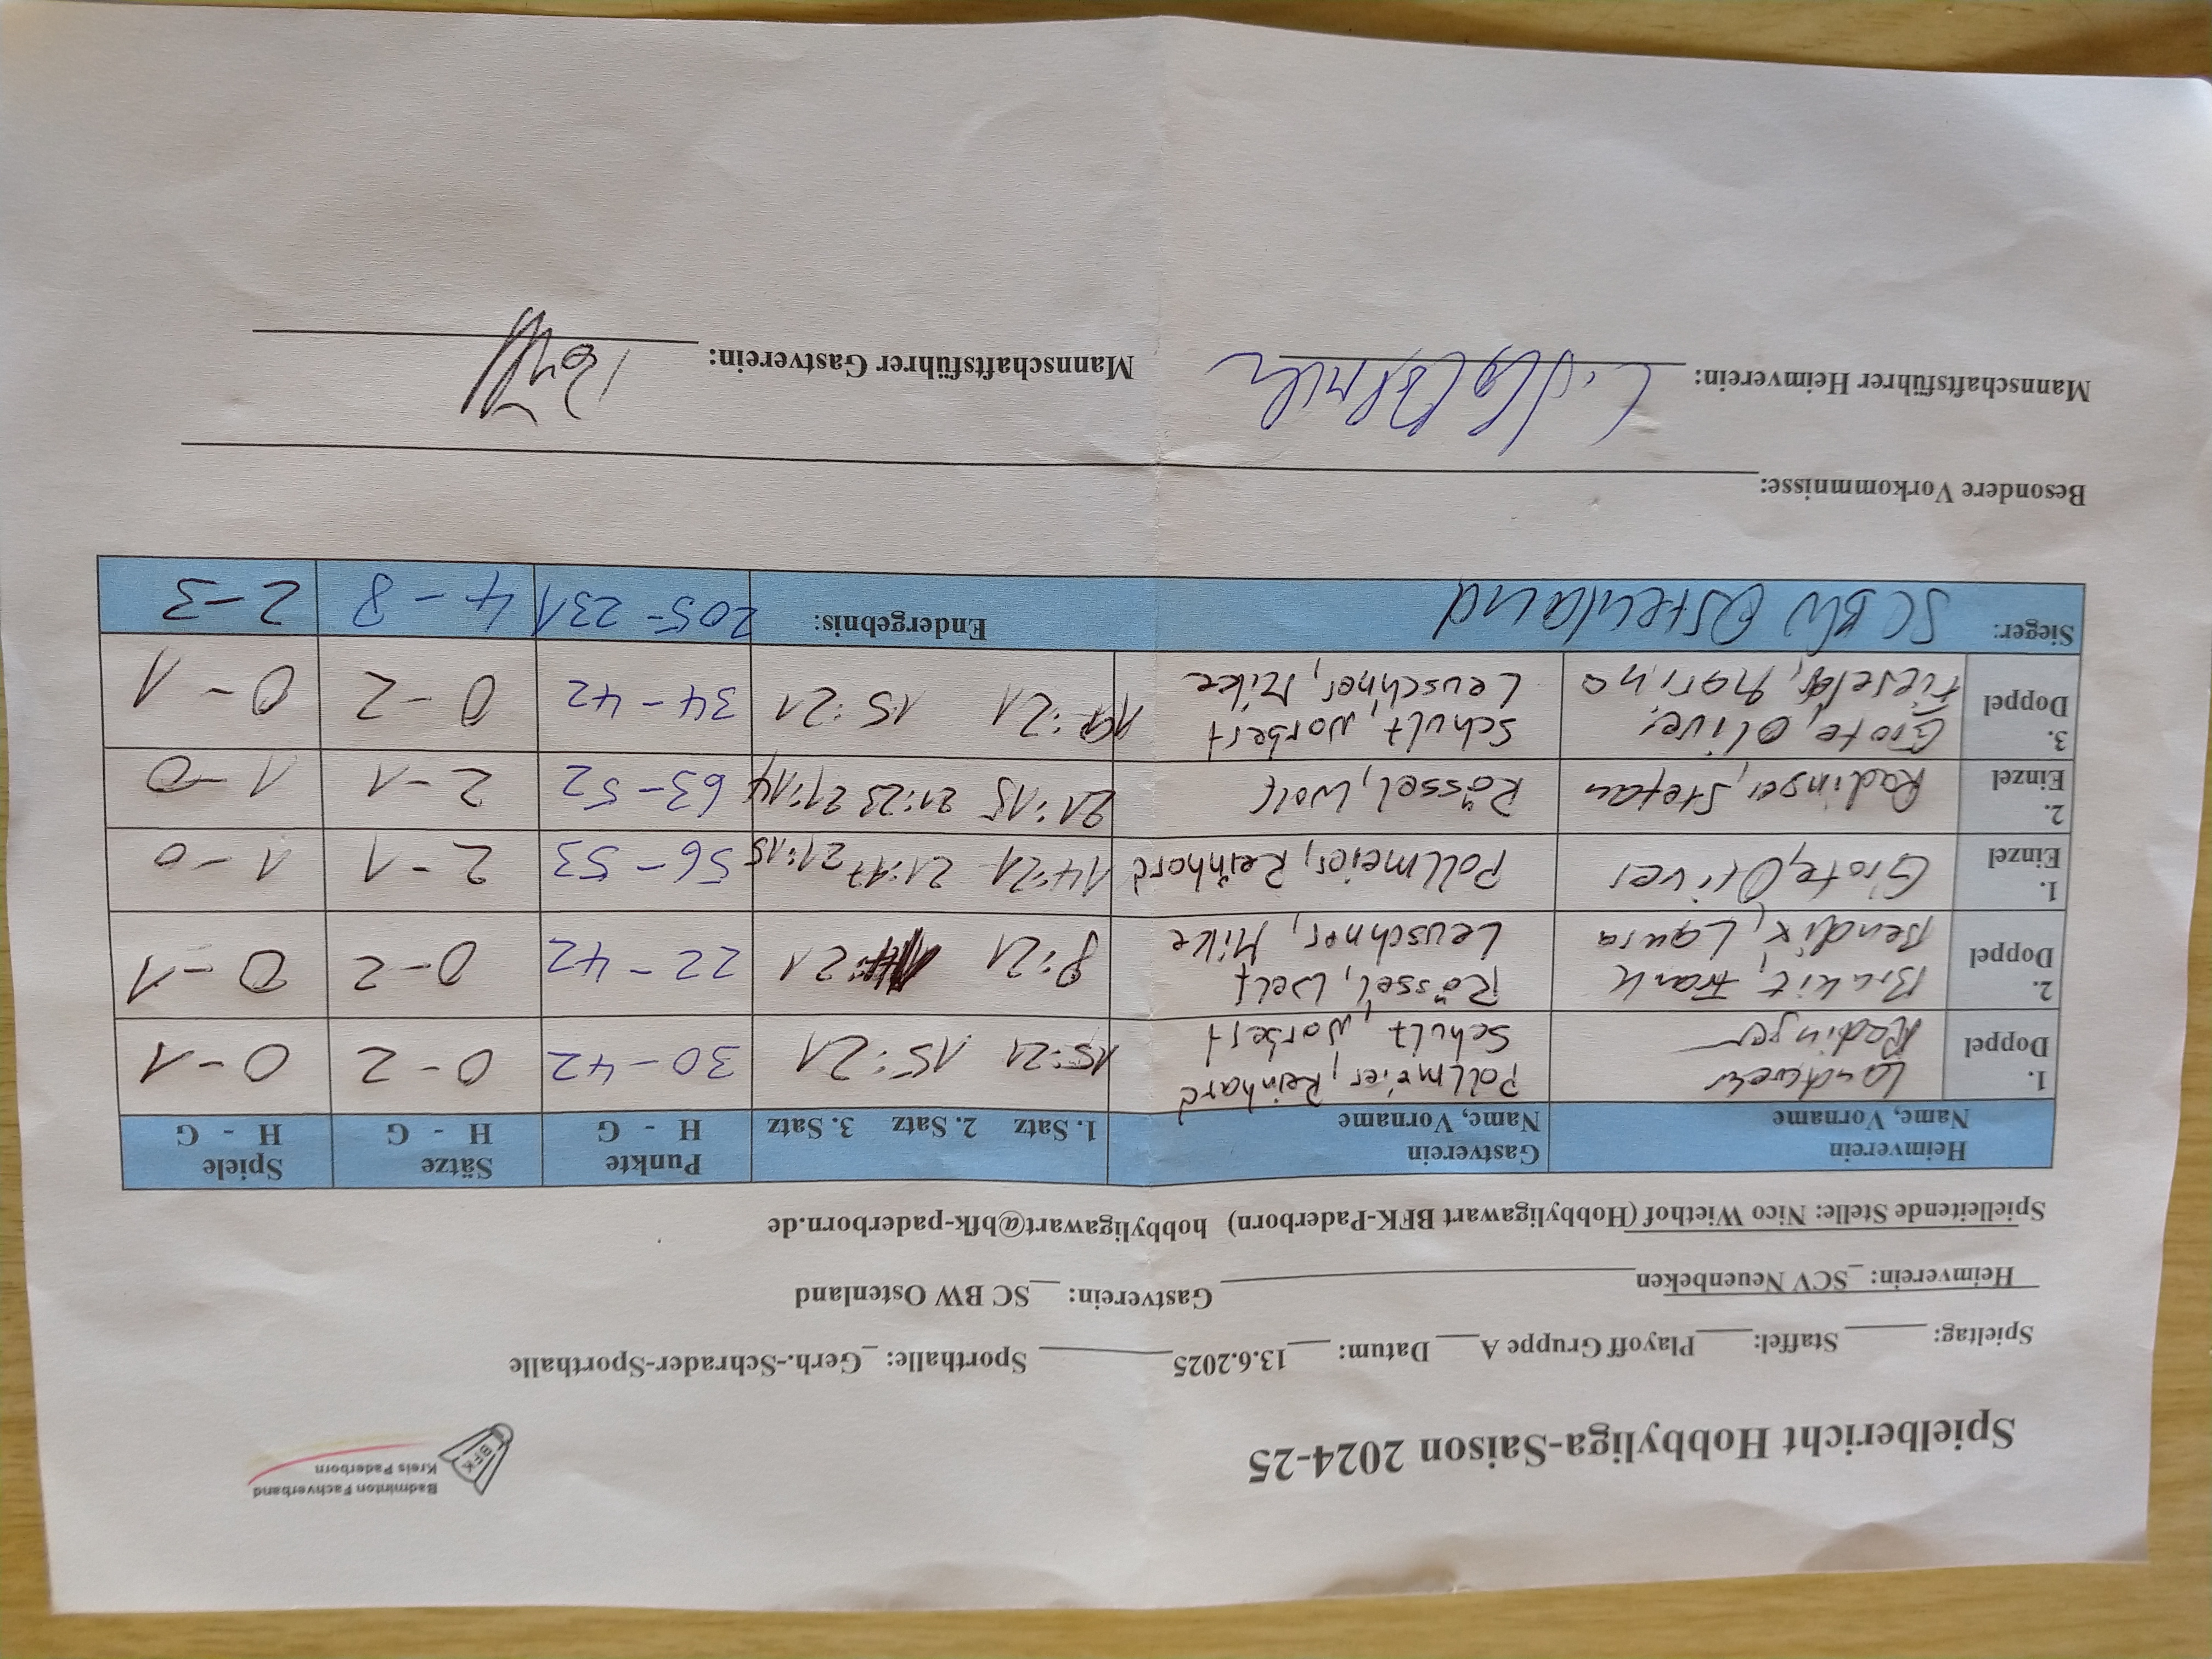 Spielbericht Hobbyliga-Saison 2024-25
Badminton Fachverband
Kreis Paderborn
BFK
Spieltag: ______ Staffel:____Playoff Gruppe A___ Datum: ___13.6.2025__________ Sporthalle: _Gerh.-Schrader-Sporthalle
Heimverein: _SCV Neuenbeken______________________________ Gastverein: __SC BW Ostenland
Spielleitende Stelle: Nico Wiethof (Hobbyligawart BFK-Paderborn) hobbyligawart@bfk-paderborn.de
Heimverein Gastverein Punkte Sätze Spiele
Name, Vorname Name, Vorname 1. Satz 2. Satz 3. Satz H - G H - G H - G
1. Landwehr Pollmeier, Reinhard 15:21 15:21 30-42 0-2 0-1
Doppel Radinger Schult, Norbert
2. Frank Rössel, Wolf 8:21 14:21 22-42 0-2 0-1
Doppel Bendix, Laura Leuschner, Mike
1. Grote, Oliver Pollmeier, Reinhard 14:21 21:17 21:15 56-53 2-1 1-0
Einzel
2. Radinger, Stefan Rössel, Wolf 21:15 21:23 21:14 63-52 2-1 1-0
Einzel
3. Grote, Oliver Schult, Norbert :21 15:21 34-42 0-2 0-1
Doppel Marina Leuschner, Mike
Sieger: SC BW Ostenland Endergebnis: 205-231 4-8 2-3
Besondere Vorkommnisse:
Mannschaftsführer Heimverein: Mannschaftsführer Gastverein: